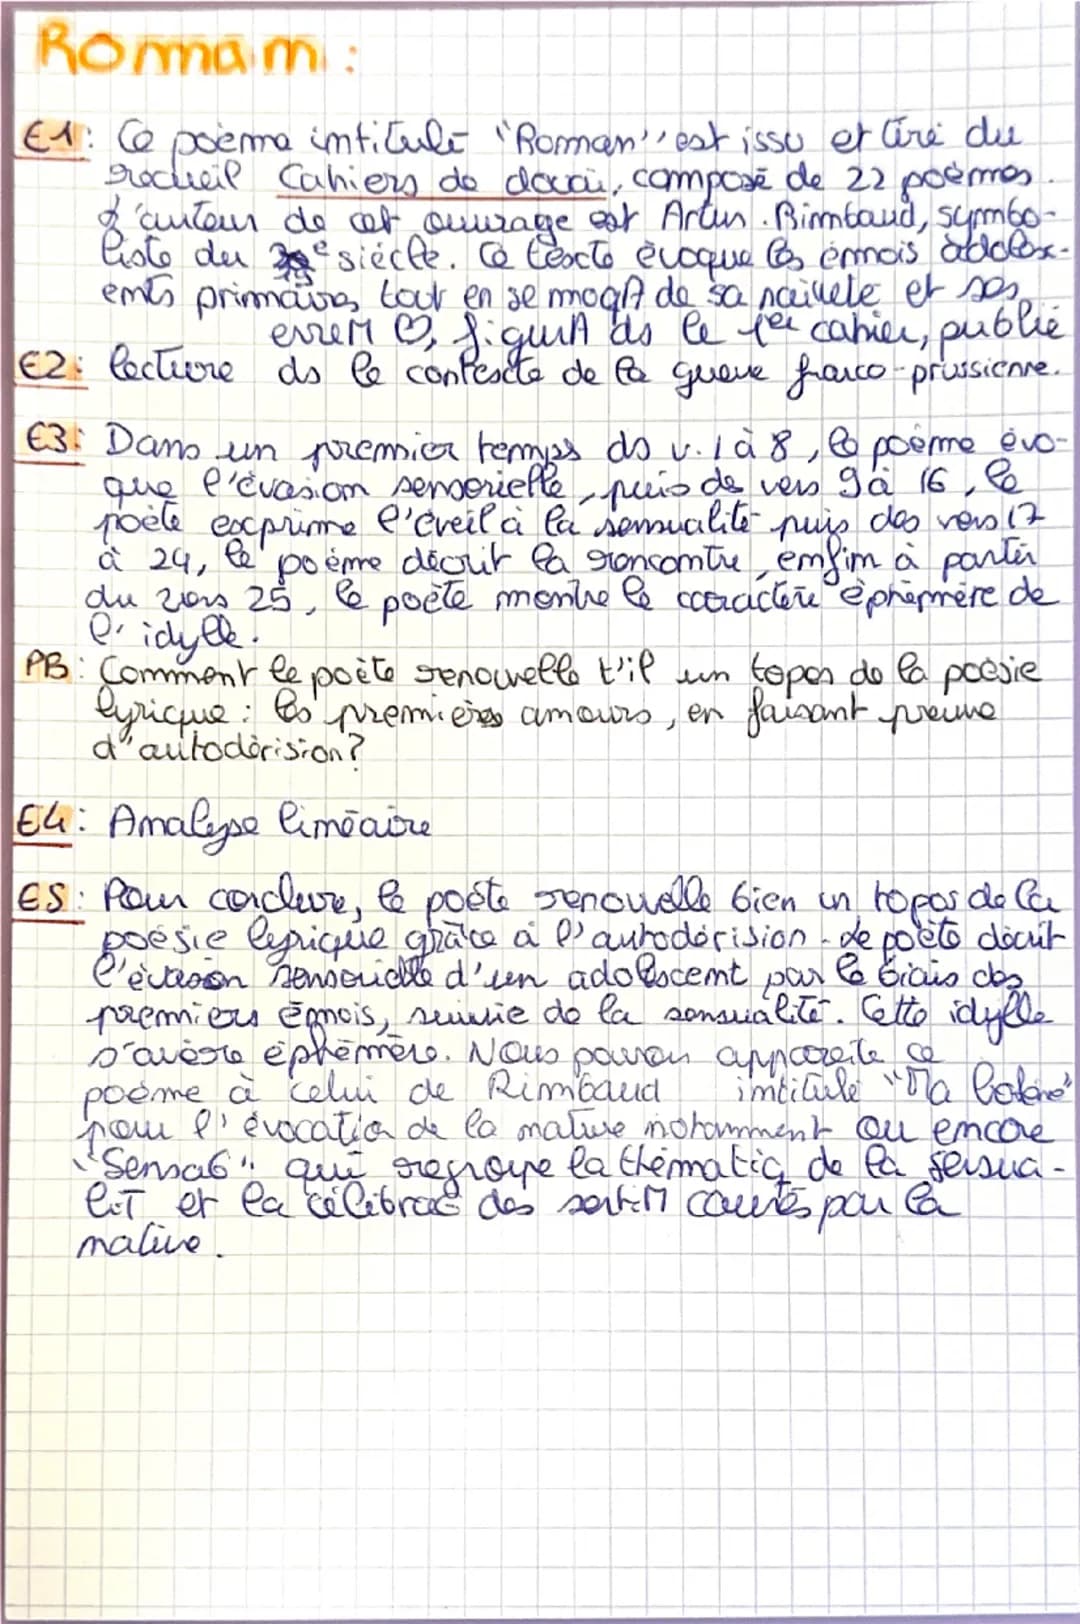 Roman :
E1 : Ce poème intitulé "Roman" est issu et tiré du
recueil Cahiers de douai, composé de 22 poèmes.
L'auteur de cet ouvrage est Artur Rimbaud, symbo-
liste du 19e siècle. Ce texte évoque les émois adolesc-
ents primaires, tout en se moqA de sa naiveté et ses
erreM ♡, figurA ds le 1er cahier, publié
E2 : lecture ds le contexte de la guerre franco-prussienne.
E3 : Dans un premier temps ds v. 1 à 8, le poème évo-
que l'évasion sensorielle, puis de vers 9 à 16, le
poète exprime l'éveil à la sensualité puis des vers 17
à 24, le poème décrit la rencontre, enfin à partir
du vers 25, le poète montre le caractère éphémère de
l'idylle.
PB : Comment le poète renouvelle t'il un topos de la poésie
lyrique : les premières amours, en faisant preuve
d'autodérision ?
E4 : Analyse linéaire
E5 : Pour conclure, le poète renouvelle bien un topos de la
poésie lyrique grâce à l'autodérision. Le poète décrit
l'évasion sensorielle d'un adolescent par le biais des
premiers émois, suivie de la sensualité. Cette idylle
s'avère éphémère. Nous pouvon apparaite ce
poème à celui de Rimbaud intitulé "Ma bohème"
pour l'évocation de la nature notamment ou encore
"Sensaб" qui regroupe la thématiq de la sensua-
liT et la célébraб des sentiM causés par la
nature.